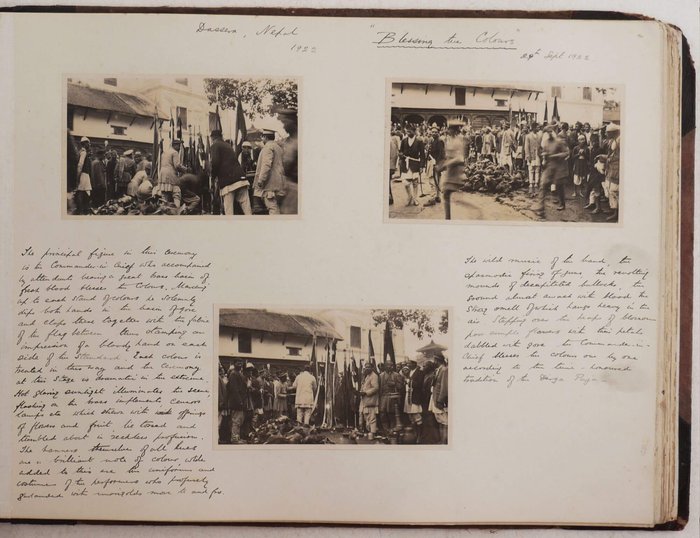 Dassera, Nepal
1922
"Blessing the Colours"
29th Sept 1922
The principal figure in this ceremony
is the Commander-in Chief who accompanied
by attendants bearing a great brass basin of
blood blesses the Colours. Marching
up to each Stand of colours he solemnly
dips both hands in the basin of gore
and claps them together with the fabric
of the flag between them stamping an
impression of a bloody hand on each
side of the Standard. Each colour is
treated in this way and the Ceremony
at this Stage is dramatic in the extreme
Hot glaring sunlight illuminates the scene
flashing on the brass implements censors
lamps etc which strewn with offerings
of flowers and fruit, lie tossed and
tumbled about in reckless profusion.
The banners themselves of all hues
are a brilliant note of colour while
added to this are the uniforms and
costumes of the performers who profusely
garlanded with marigolds move to and fro.
The wild music of the band, the
spasmodic firing of guns, the revolting
mounds of decapitated bullocks, the
ground almost awash with blood the
Steaz smell of which hangs heavy in the
air. Stepping over the heaps of blossom
flowers with their petals
dabbled with gore the Commander-in-
Chief blesses the colours one by one
according to the time-honoured
tradition of the Durga Puja.